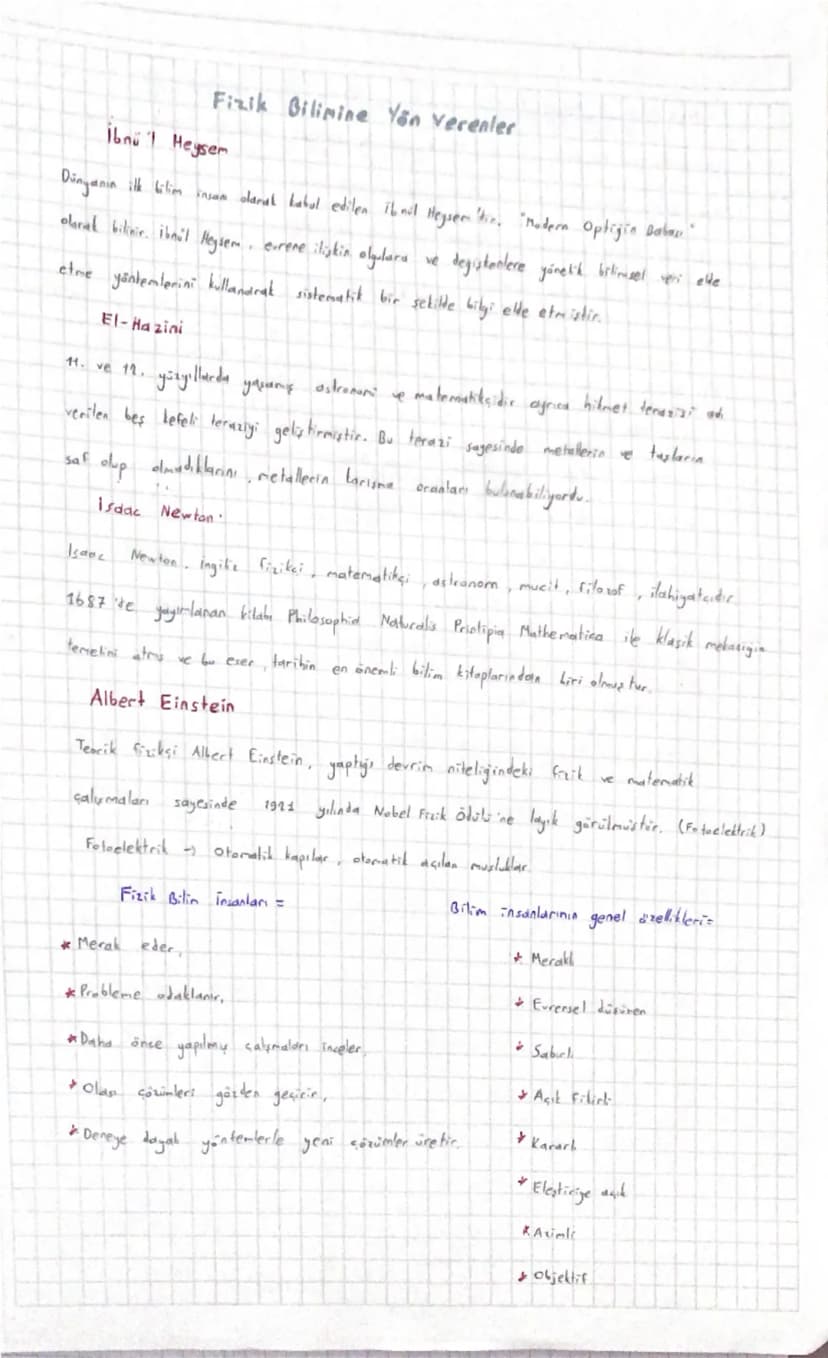 Fizik Bilimine Yön Verenler
İbnü'l Heysem
Dünyanın ilk bilim insanı olarak kabul edilen İbnül Heysem'dir. "Modern Optiğin Babası"
olarak bilinir. İbnü'l Heysem, evrene ilişkin olgulara ve değişkenlere yönelik bilimsel veri elde
etme yöntemlerini kullanarak sistematik bir şekilde bilgi elde etmiştir.
El-Hazini
11. ve 12. yüzyıllarda yaşamış astronom ve matematikçidir ayrıca hikmet terazisi adı
verilen beş kefeli teraziyi geliştirmiştir. Bu terazi sayesinde metallerin ve taşların
saf olup olmadıklarını, metallerin karışma oranları bulunabiliyordu.
İsaac Newton:
Isaac Newton, ingiliz fizikçi, matematikçi, astronom, mucit, filozof, ilahiyatçıdır
1687'de yayımlanan kitabı Philosophia Naturalis Prinlipia Mathematica ile klasik mekaniğin
temelini atmış ve bu eser, tarihin en önemli bilim kitaplarından biri olmuştur.
Albert Einstein
Teorik fizikçi Albert Einstein, yaptığı devrim niteliğindeki fizik ve matematik
çalışmaları sayesinde 1921 yılında Nobel Fizik Ödülü'ne layık görülmüştür. (Fotoelektrik)
Fotoelektrik → Otomatik kapılar, otomatik açılan musluklar.
Fizik Bilim İnsanları =
* Merak eder,
* Probleme odaklanır,
* Daha önce yapılmış çalışmaları inceler,
* Olası çözümleri gözden geçirir,
* Deneye dayalı yöntemlerle yeni çözümler üretir.
Bilim insanlarının genel özellikleri=
* Meraklı
* Evrensel düşünen
* Sabırlı
* Açık Fikirli
* Kararlı
* Eleştiriye açık
* Azimli
* Objektif